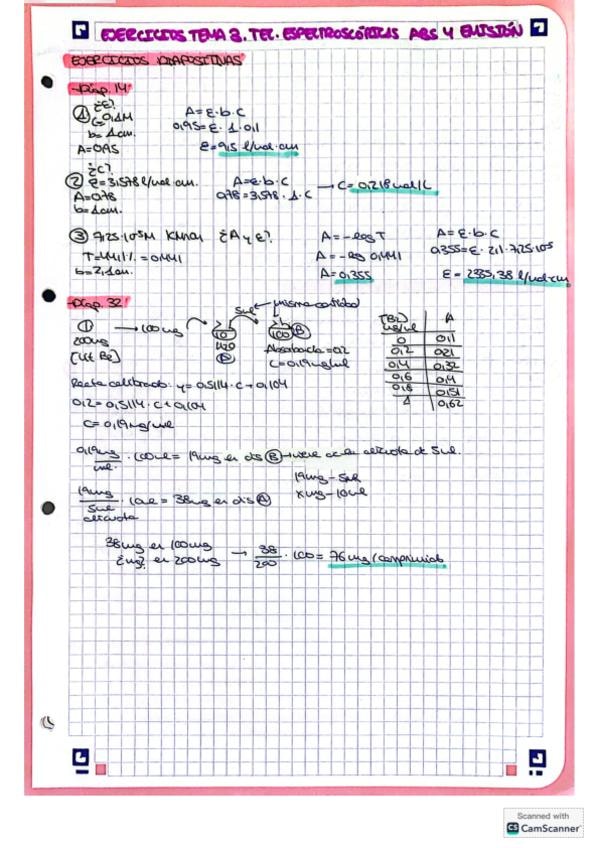 EJERCICIOS TEMA 3. TEC. ESPECTROSCÓPICAS ABS Y EMISIÓN
EJERCICIOS DIAPOSITIVAS
-Diap. 14:
① ¿ε?
C=0,1M
b=1cm.
A=0,95
A=ε·b·C
0,95=ε·1·0,1
ε=9,5 l/mol·cm
② ¿C?
ε=3,578 l/mol·cm.
A=0,78
b=1cm.
A=ε·b·C
0,78=3,578·1·C
→ C=0,218 mol/L
③ 7,25·10⁻⁵M KMnO₄ ¿A y ε?
T=44,1% = 0,441
b=2,1cm.
A=-log T
A=-log 0,441
A=0,355
A=ε·b·C
0,355=ε·2,1·7,25·10⁻⁵
ε = 2335,38 l/mol·cm
-Diap. 32:
①
200mg
→ 100mg
10
H₂O
Ⓐ
5ml ← misma cantidad
100 Ⓑ
Absorbancia=0,2
C=0,19mg/ml
A
0 0,11
0,2 0,21
0,4 0,32
0,6 0,4
0,8 0,51
1 0,62
Recta calibrado: y=0,5114·C+0,104
0,2=0,5114·C+0,104
C=0,19mg/ml
0,19mg/ml · 100ml = 19mg en dis Ⓑ → viene de la alícuota de 5ml.
19mg - 5ml
x mg - 10ml
19mg/5ml alícuota · 10ml = 38mg en dis Ⓐ
38mg en 100mg
¿mg? en 200mg
→ 38/200 · 100 = 76mg/comprimido
Scanned with
CS CamScanner